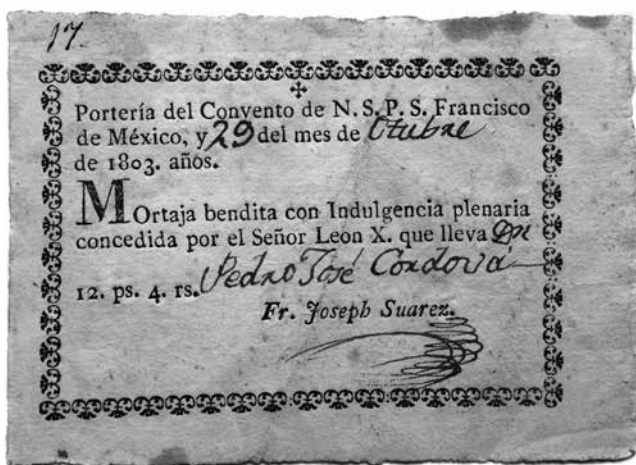 17.
Portería del Convento de N. S. P. S. Francisco
de México, y 29 del mes de Otubre
de 1803. años.
MOrtaja bendita con Indulgencia plenaria
concedida por el Señor Leon X. que lleva
12. ps. 4. rs. Pedro José Cordova
Fr. Joseph Suarez.